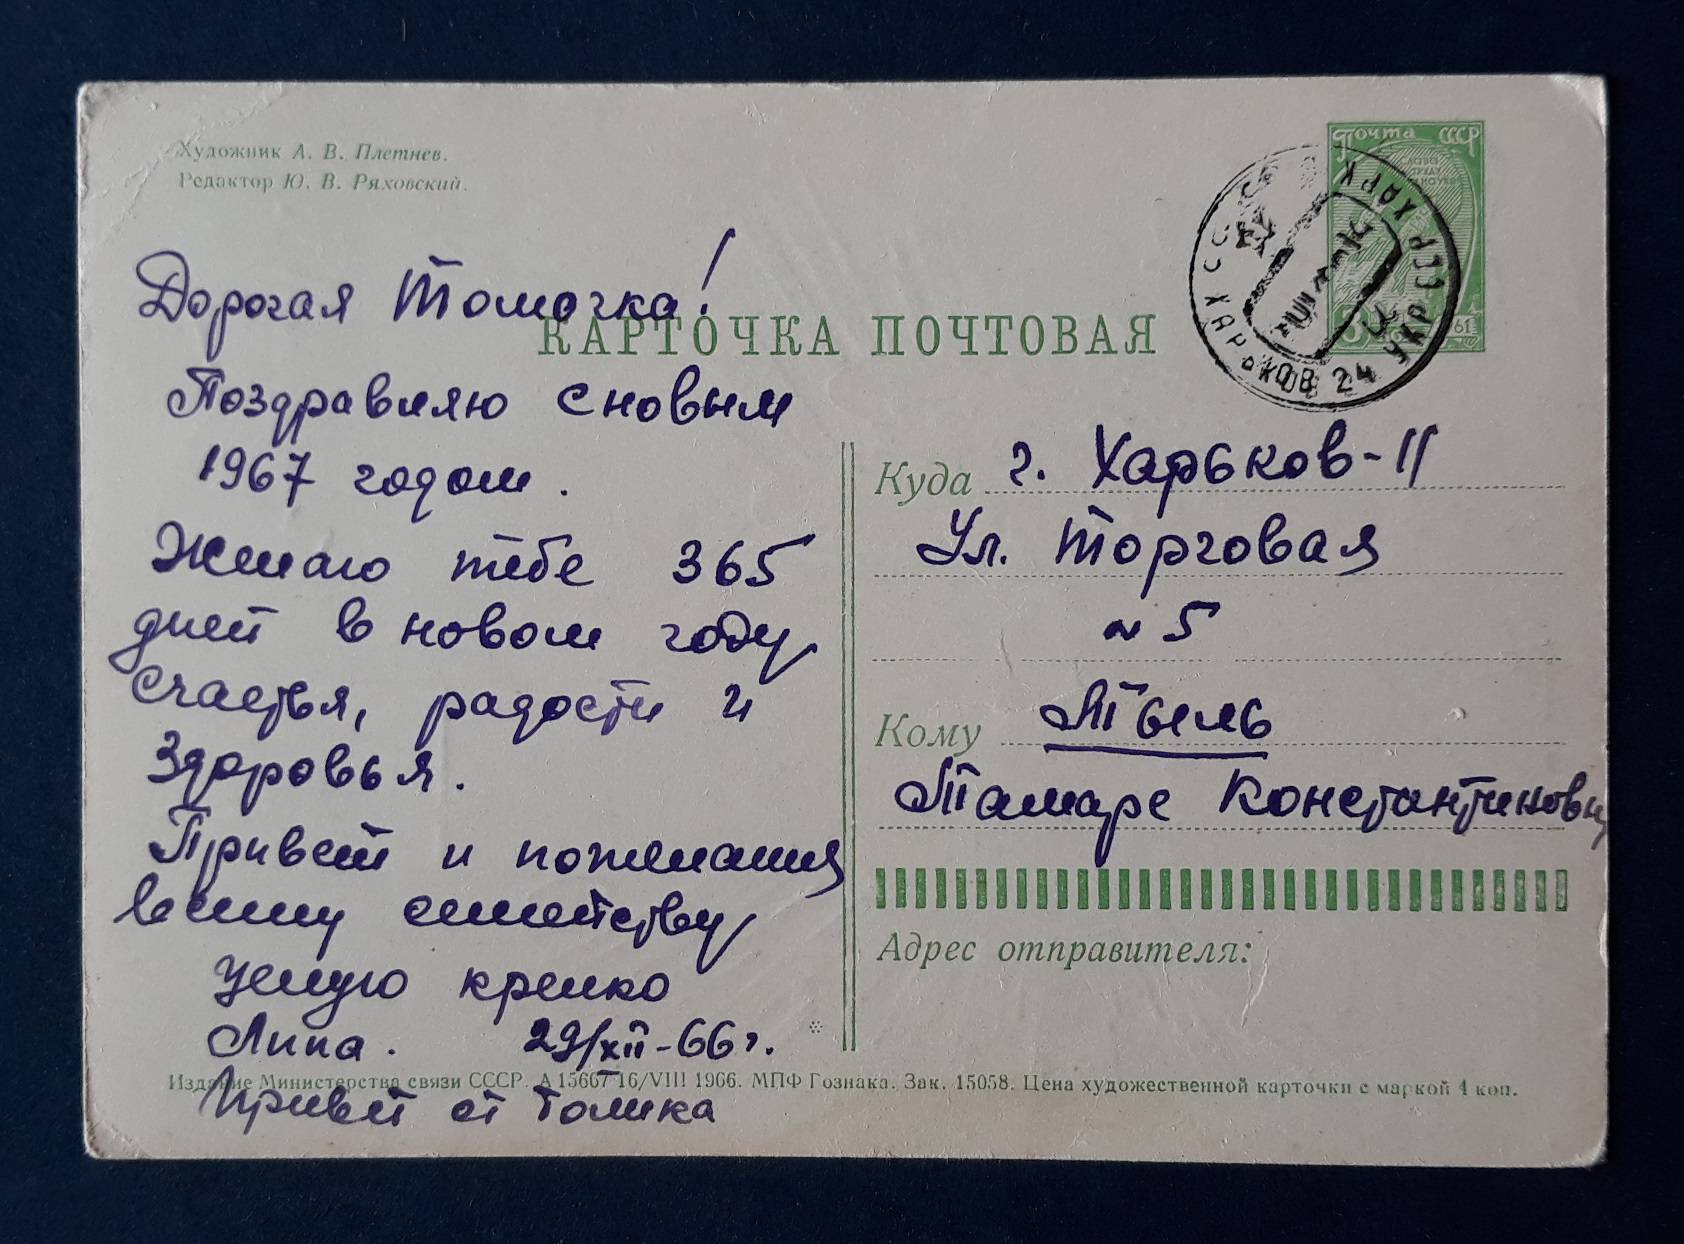 Художник А. В. Плетнев.
Редактор Ю. В. Ряховский.
Почта СССР
КАРТОЧКА ПОЧТОВАЯ
Дорогая Томочка!
Поздравляю с новым
1967 годом.
Желаю тебе 365
дней в новом году
счастья, радости и
здоровья.
Привет и пожелания
всему семейству
Целую крепко
Липа. 29/XII-66 г.
Привет от Толика
ХАРЬКОВ 24 УКР ССР
61
Куда г. Харьков-11
Ул. Торговая
№ 5
Кому
Тамаре Константиновне
Адрес отправителя:
Издание Министерства связи СССР. А 15667 16/VIII 1966. МПФ Гознака. Зак. 15058. Цена художественной карточки с маркой 4 коп.